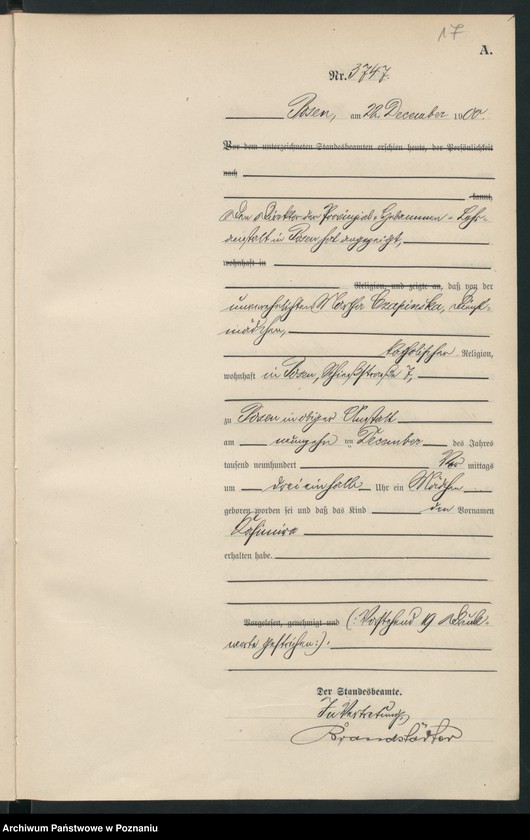 17
A.
Nr. 3747.
Posen, am 22. December 1900.
Vor dem unterzeichneten Standesbeamten erschien heute, der Persönlichkeit
nach
kannt,
Der Direktor der Provinzial-Hebammen-Lehr-
anstalt in Posen hat angezeigt,
wohnhaft in
Religion, und zeigte an, daß von der
unverehelichten Martha Czapinska, Dienst-
mädchen,
katholischer Religion,
wohnhaft in Posen, 7,
zu Posen in obiger Anstalt
am neunzehnten December des Jahres
tausend neunhundert Vor mittags
um drei einhalb Uhr ein Mädchen
geboren worden sei und daß das Kind den Vornamen
Kasimira
erhalten habe.
Vorgelesen, genehmigt und (: Vorstehend 19 Druck-
worte gestrichen :).
Der Standesbeamte.
In Vertretung
Brandstädter
Archiwum Państwowe w Poznaniu